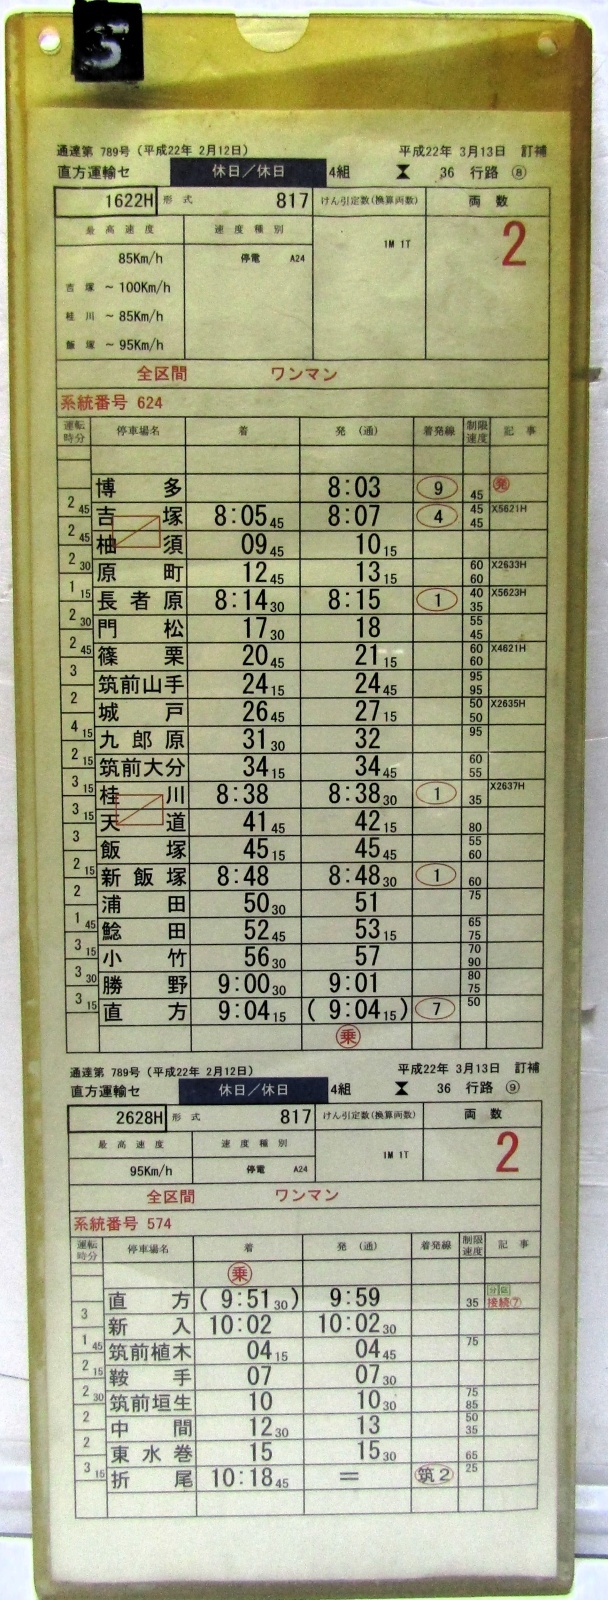 S
通達第 789号（平成22年 2月12日） 平成22年 3月13日 訂補
直方運輸セ 休日／休日 4組 36 行路 ⑧
1622H 形式 817 けん引定数(換算両数) 両数
最高速度 速度種別 1M 1T 2
85Km/h 停電 A24
吉塚 ～ 100Km/h
桂川 ～ 85Km/h
飯塚 ～ 95Km/h
全区間 ワンマン
系統番号 624
運転時分 停車場名 着 発（通） 着発線 制限速度 記事
博多 8:03 9 45 発
2 45 吉塚 8:05 45 8:07 4 45 45 X5621H
2 45 柚須 09 45 10 15
2 30 原町 12 45 13 15 60 60 X2633H
1 15 長者原 8:14 30 8:15 1 40 35 X5623H
2 30 門松 17 30 18 55 45
2 45 篠栗 20 45 21 15 60 60 X4621H
3 筑前山手 24 15 24 45 95 95
2 城戸 26 45 27 15 50 50 X2635H
4 15 九郎原 31 30 32 95
2 15 筑前大分 34 15 34 45 60 55
3 15 桂川 8:38 8:38 30 1 35 X2637H
3 15 天道 41 45 42 15 80
3 飯塚 45 15 45 45 55 60
2 15 新飯塚 8:48 8:48 30 1 60
2 浦田 50 30 51 75
1 45 鯰田 52 45 53 15 65 75
3 15 小竹 56 30 57 70 90
3 30 勝野 9:00 30 9:01 80 75
3 15 直方 9:04 15 ( 9:04 15 ) 7 50
乗
通達第 789号（平成22年 2月12日） 平成22年 3月13日 訂補
直方運輸セ 休日／休日 4組 36 行路 ⑨
2628H 形式 817 けん引定数(換算両数) 両数
最高速度 速度種別 1M 1T 2
95Km/h 停電 A24
全区間 ワンマン
系統番号 574
運転時分 停車場名 着 発（通） 着発線 制限速度 記事
乗
直方 ( 9:51 30 ) 9:59 35 接続⑦
3 新入 10:02 10:02 30
1 45 筑前植木 04 15 04 45 75
2 15 鞍手 07 07 30
2 30 筑前垣生 10 10 30 75 85
2 中間 12 30 13 50 35
2 東水巻 15 15 30 65
3 15 折尾 10:18 45 ＝ 筑2 25